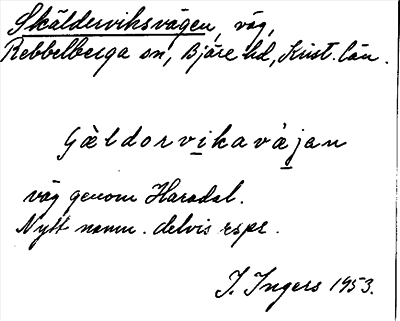 Skälderviksvägen, väg,
Rebbelberga sn, Bjäre hd, Krist. län.
Gäldorvikavàjan
väg genom Haradal.
Nytt namn. delvis rspr.
I. Ingers 1953.